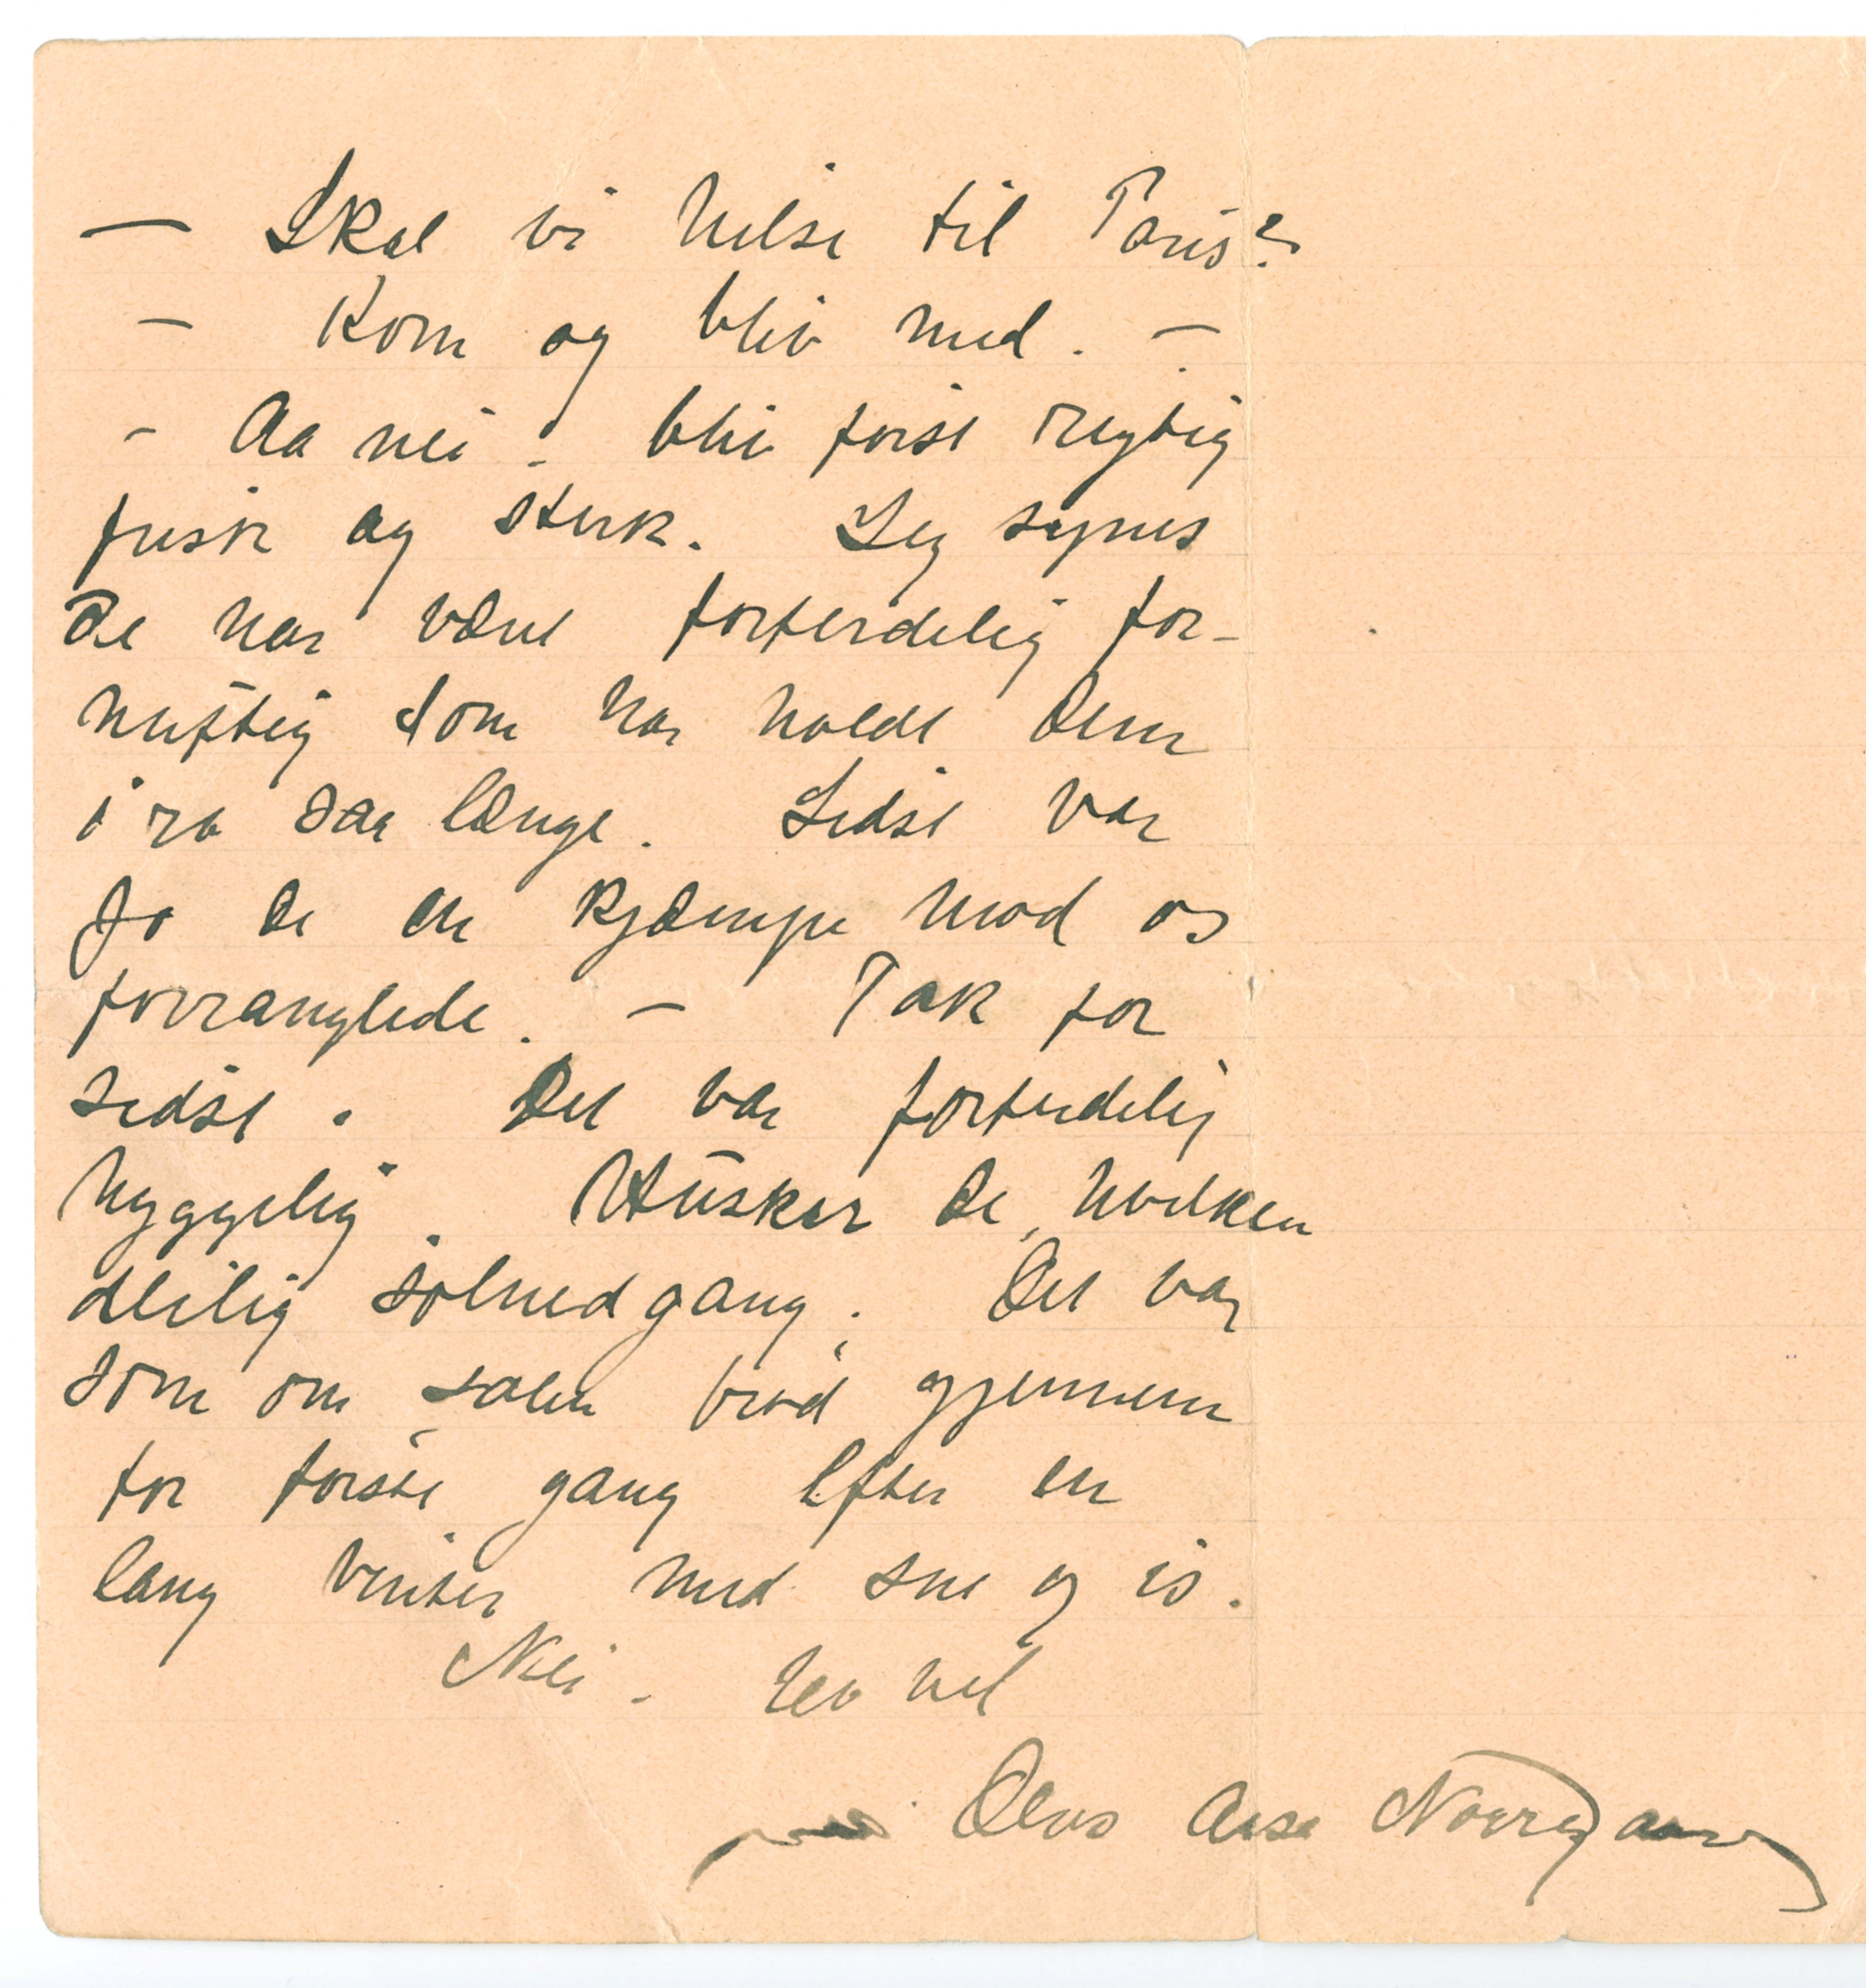 — Skal vi hilse til Paris?
— Kom og bliv med. —
— Aa nei. bliv først rigtig
frisk og sterk. Jeg synes
De har været forferdelig for-
nuftig som har holdt Dem
i ro saa længe. Sidst var
jo De en kjæmpe mod os
forranglede. — Tak for
sidst. Det var forferdelig
hyggelig. Husker De, hvilken
deilig solnedgang. Det var
som om solen brød gjennem
for første gang efter en
lang vinter med sne og is.
Nei. lev vel
Deres Aase Nørregaard